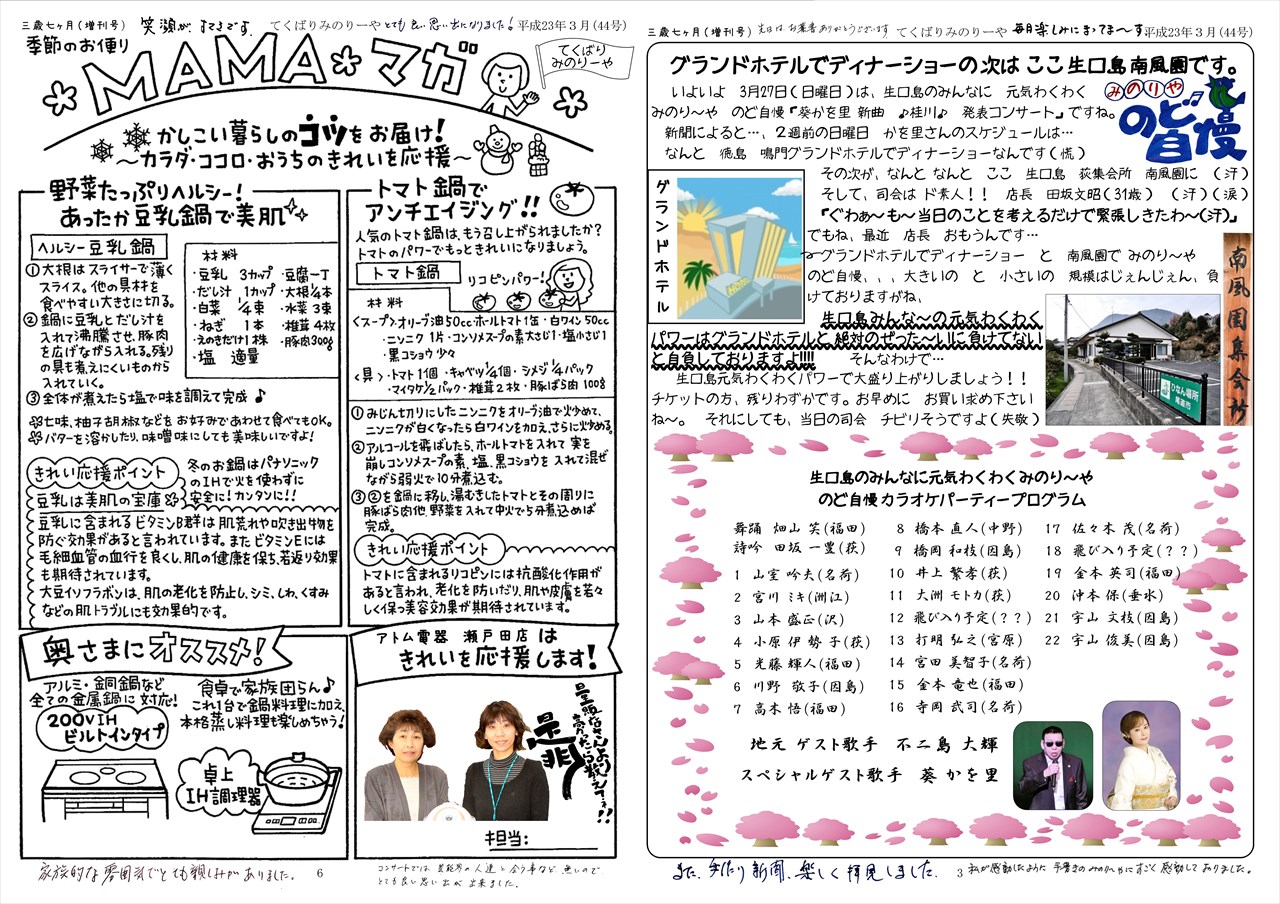 三歳七ヶ月(増刊号)
笑顔がすてきです
てくばりみのりーや
とても良い思い出になりました!
平成23年3月(44号)
季節のお便り
MAMA*マガ
てくばり
みのりーや
かしこい暮らしのコツをお届け!
~カラダ・ココロ・おうちのきれいを応援~
野菜たっぷりヘルシー!
あったか豆乳鍋で美肌
ヘルシー豆乳鍋
①大根はスライサーで薄く
スライス。他の具材を
食べやすい大きさに切る。
②鍋に豆乳とだし汁を
入れて沸騰させ、豚肉
を広げながら入れる。残り
の具も煮えにくいものから
入れていく。
③全体が煮えたら塩で味を調えて完成♪
材料
・豆乳 3カップ ・豆腐一丁
・だし汁 1カップ ・大根1/4本
・白菜 1/4束 ・水菜3束
・ねぎ 1本 ・椎茸4枚
・えのきだけ1株 ・豚肉300g
・塩 適量
七味、柚子胡椒などをお好みであわせて食べてもOK。
バターを溶かしたり、味噌味にしても美味しいですよ!
きれい応援ポイント
冬のお鍋はパナソニック
のIHで火を使わずに
安全に!カンタンに!!
豆乳は美肌の宝庫
豆乳に含まれるビタミンB群は肌荒れや吹き出物を
防ぐ効果があると言われています。またビタミンEには
毛細血管の血行を良くし、肌の健康を保ち、若返り効果
も期待されています。
大豆イソフラボンは、肌の老化を防止し、シミ、しわ、くすみ
などの肌トラブルにも効果的です。
トマト鍋で
アンチエイジング!!
人気のトマト鍋は、もう召し上がられましたか?
トマトのパワーでもっときれいになりましょう。
トマト鍋
リコピンパワー!
材料
<スープ>・オリーブ油50cc・ホールトマト1缶・白ワイン50cc
・ニンニク1片・コンソメスープの素大さじ1・塩小さじ1
・黒コショウ少々
<具>・トマト1個・キャベツ1/4個・シメジ1/4パック
・マイタケ1/2パック・椎茸2枚・豚ばら肉100g
①みじん切りにしたニンニクをオリーブ油で火炒めて、
ニンニクが白くなったら白ワインを加え、さらに火炒める。
②アルコールを飛ばしたら、ホールトマトを入れて実を
崩しコンソメスープの素、塩、黒コショウを入れて混ぜ
ながら弱火で10分煮込む。
③②を鍋に移し、湯むきしたトマトとその周りに
豚ばら肉他、野菜を入れて中火で5分煮込めば
完成。
きれい応援ポイント
トマトに含まれるリコピンには抗酸化作用が
あると言われ、老化を防いだり、肌や皮膚を若々
しく保つ美容効果が期待されています。
奥さまにオススメ!
アルミ・銅鍋など
全ての金属鍋に対応!
200VIH
ビルトインタイプ
食卓で家族団らん♪
これ1台で鍋料理に加え、
本格蒸し料理も楽しめちゃう!
卓上
IH調理器
アトム電器 瀬戸田店は
きれいを応援します!
是非
担当:
家族的な雰囲気でとても親しみがありました。
6
コンサートでは芸能界の人達と会う事など無いので
とても良い思い出が出来ました。
三歳七ヶ月(増刊号)
先日はお葉書ありがとうございます
てくばりみのりーや
毎月楽しみにまってま~す
平成23年3月(44号)
グランドホテルでディナーショーの次は ここ生口島南風園です。
いよいよ 3月27日(日曜日)は、生口島のみんなに 元気わくわく
みのり~や のど自慢『葵かを里 新曲 ♪桂川♪ 発表コンサート』ですね。
新聞によると…、2週前の日曜日 かを里さんのスケジュールは…
なんと 徳島 鳴門グランドホテルでディナーショーなんです(慌)
みのりや
のど自慢
その次が、なんと なんと ここ 生口島 荻集会所 南風園に (汗)
そして、司会は ド素人!! 店長 田坂文昭(31歳) (汗)(涙)
『ぐわぁ~も~当日のことを考えるだけで緊張しきたわ~(汗)』
でもね、最近 店長 おもうんです…
グランドホテルでディナーショー と 南風園で みのり~や
のど自慢、、、大きいの と 小さいの 規模はじぇんじぇん、負
けておりますがね、
グランドホテル
HOTEL
南風園集会所
ひなん場所
尾道市
生口島みんな~の元気わくわく
パワーはグランドホテルと絶対のぜった~いに負けてない
と自負しておりますよ!!!! そんなわけで…
生口島元気わくわくパワーで大盛り上がりしましょう!!
チケットの方、残りわずかです。お早めに お買い求め下さい
ね~。 それにしても、当日の司会 チビリそうですよ(失敬)
生口島のみんなに元気わくわくみのり~や
のど自慢カラオケパーティープログラム
舞踊 畑山 笑(福田)
詩吟 田坂 一豊(荻)
1 山室 吟夫(名荷)
2 宮川 ミキ(洲江)
3 山本 盛正(沢)
4 小原 伊勢子(荻)
5 光藤 輝人(福田)
6 川野 敬子(因島)
7 高木 悟(福田)
8 橋本 直人(中野)
9 橋岡 和枝(因島)
10 井上 繁孝(荻)
11 大洲 モトカ(荻)
12 飛び入り予定(??)
13 打明 弘之(宮原)
14 宮田 美智子(名荷)
15 金本 竜也(福田)
16 寺岡 武司(名荷)
17 佐々木 茂(名荷)
18 飛び入り予定(??)
19 金本 英司(福田)
20 沖本 保(垂水)
21 宇山 文枝(因島)
22 宇山 俊美(因島)
地元 ゲスト歌手 不二島 大輝
スペシャルゲスト歌手 葵 かを里
また、手作り新聞、楽しく拝見しました。
3
私が感動したように手書きのみのりーやにすごく感動してありました。